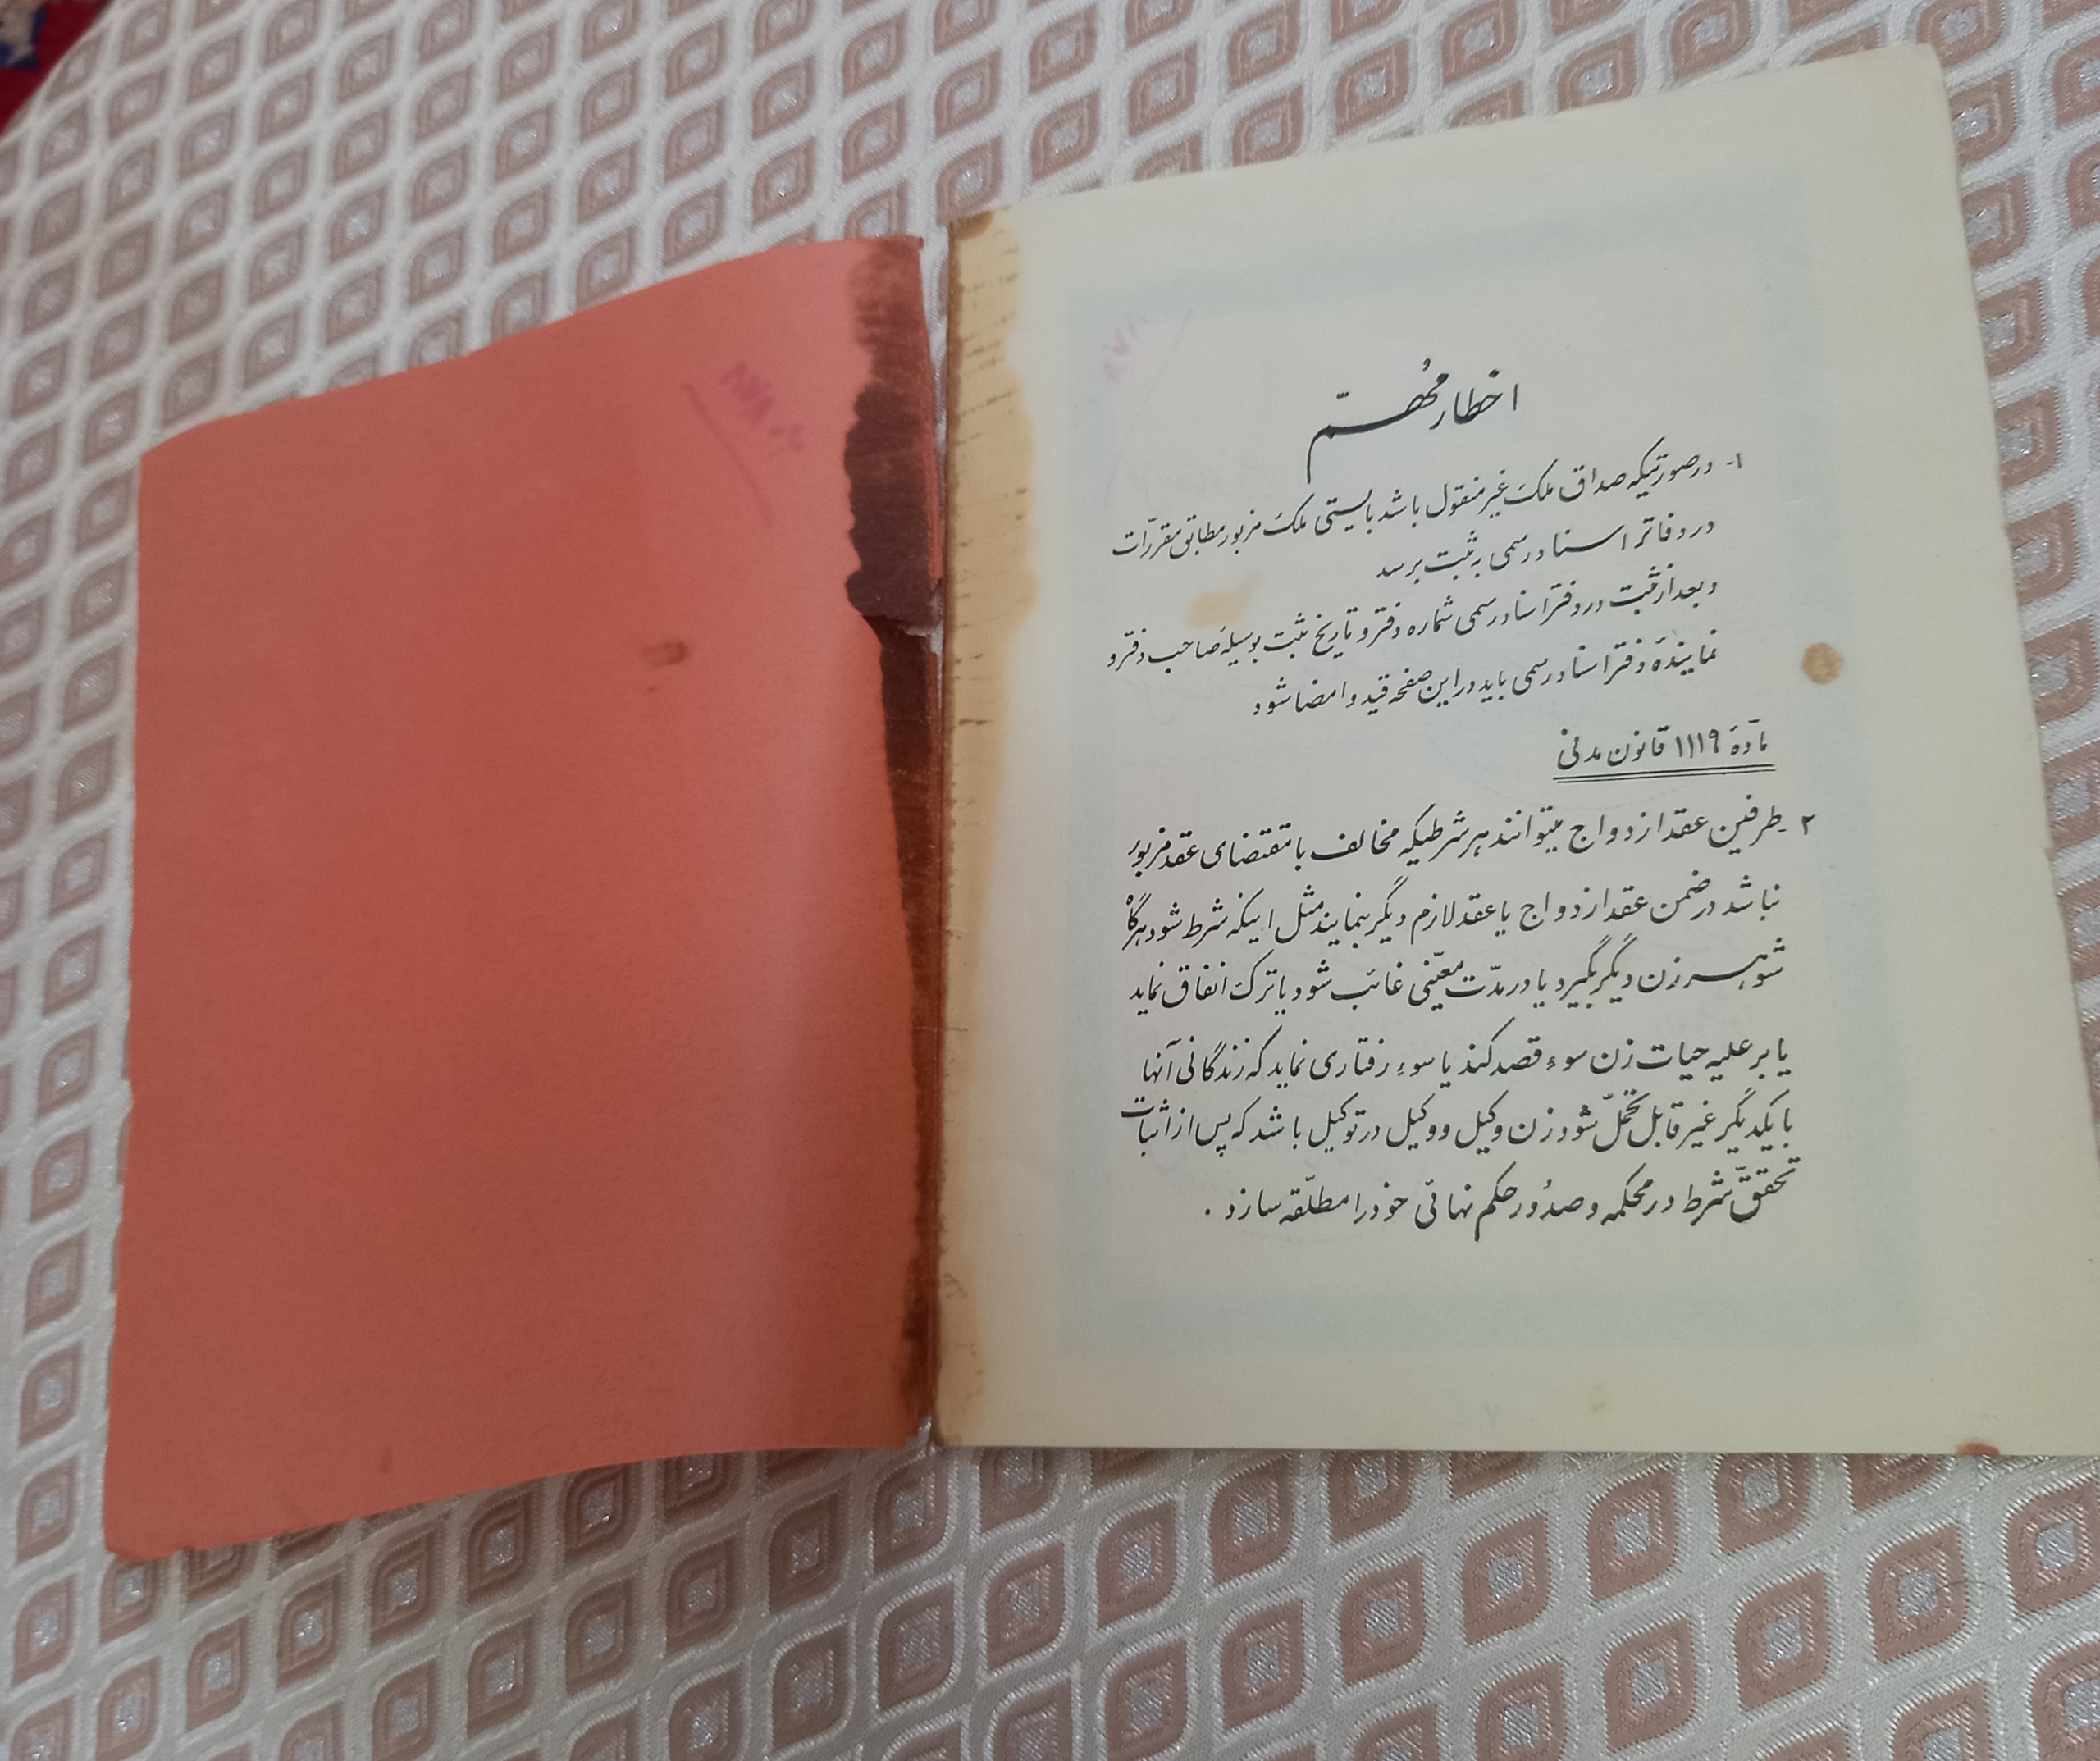 اخطار مهمّ
۱- در صورتیکه صداق ملک غیر منقول باشد بایستی ملک مزبور مطابق مقررّات
در دفاتر اسناد رسمی به ثبت برسد
و بعد از ثبت در دفتر اسناد رسمی شماره دفتر و تاریخ ثبت بوسیلهٔ صاحب دفتر و
نمایندهٔ دفتر اسناد رسمی باید در این صفحه قید و امضا شود
مادّهٔ ۱۱۱۹ قانون مدنی
۲- طرفین عقد ازدواج میتوانند هر شرطیکه مخالف با مقتضای عقد مزبور
نباشد در ضمن عقد ازدواج یا عقد لازم دیگر بنمایند مثل اینکه شرط شود هرگاه
شوهر زن دیگر بگیرد یا در مدّت معیّنی غائب شود یا ترک انفاق نماید
یا بر علیه حیات زن سوء قصد کند یا سوء رفتاری نماید که زندگانی آنها
با یکدیگر غیر قابل تحمّل شود زن وکیل و وکیل در توکیل باشد که پس از اثبات
تحققّ شرط در محکمه و صدُور حکم نهائی خود را مطلّقه سازد .